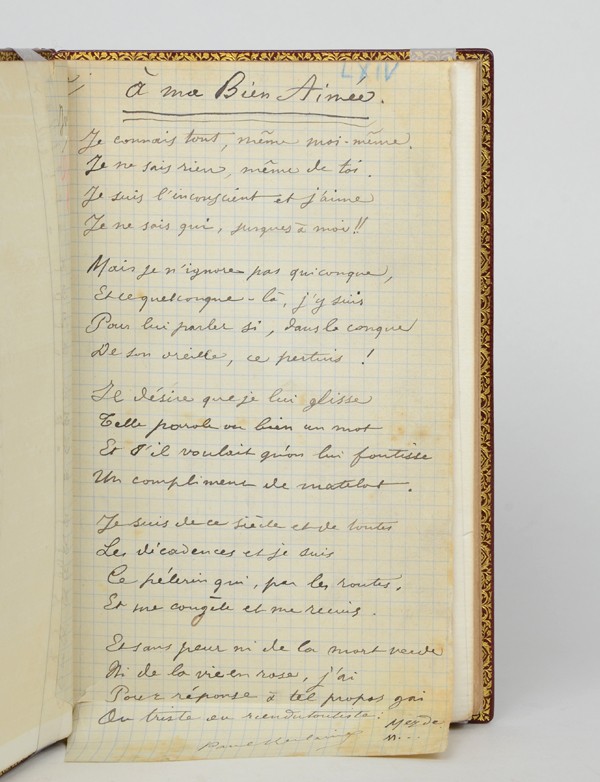 LXIV
à ma Bien Aimée.
Je connais tout, même moi-même.
Je ne sais rien, même de toi.
Je suis l'inconscient et j'aime
Je ne sais qui, jusques à moi!!
Mais je n'ignore pas quiconque,
Et ce quelconque-là, j'y suis
Pour lui parler si, dans la conque
De son oreille, ce pertuis !
Il désire que je lui glisse
Telle parole ou bien un mot
Et s'il voulait qu'on lui foutisse
Un compliment de matelot.
Je suis de ce siècle et de toutes
Les décadences et je suis
Ce pélerin qui, par les routes,
Et me congèle et me recuis.
Et sans peur ni de la mort verde
Ni de la vie en rose, j'ai
Pour réponse à tel propos gai
Ou triste ou